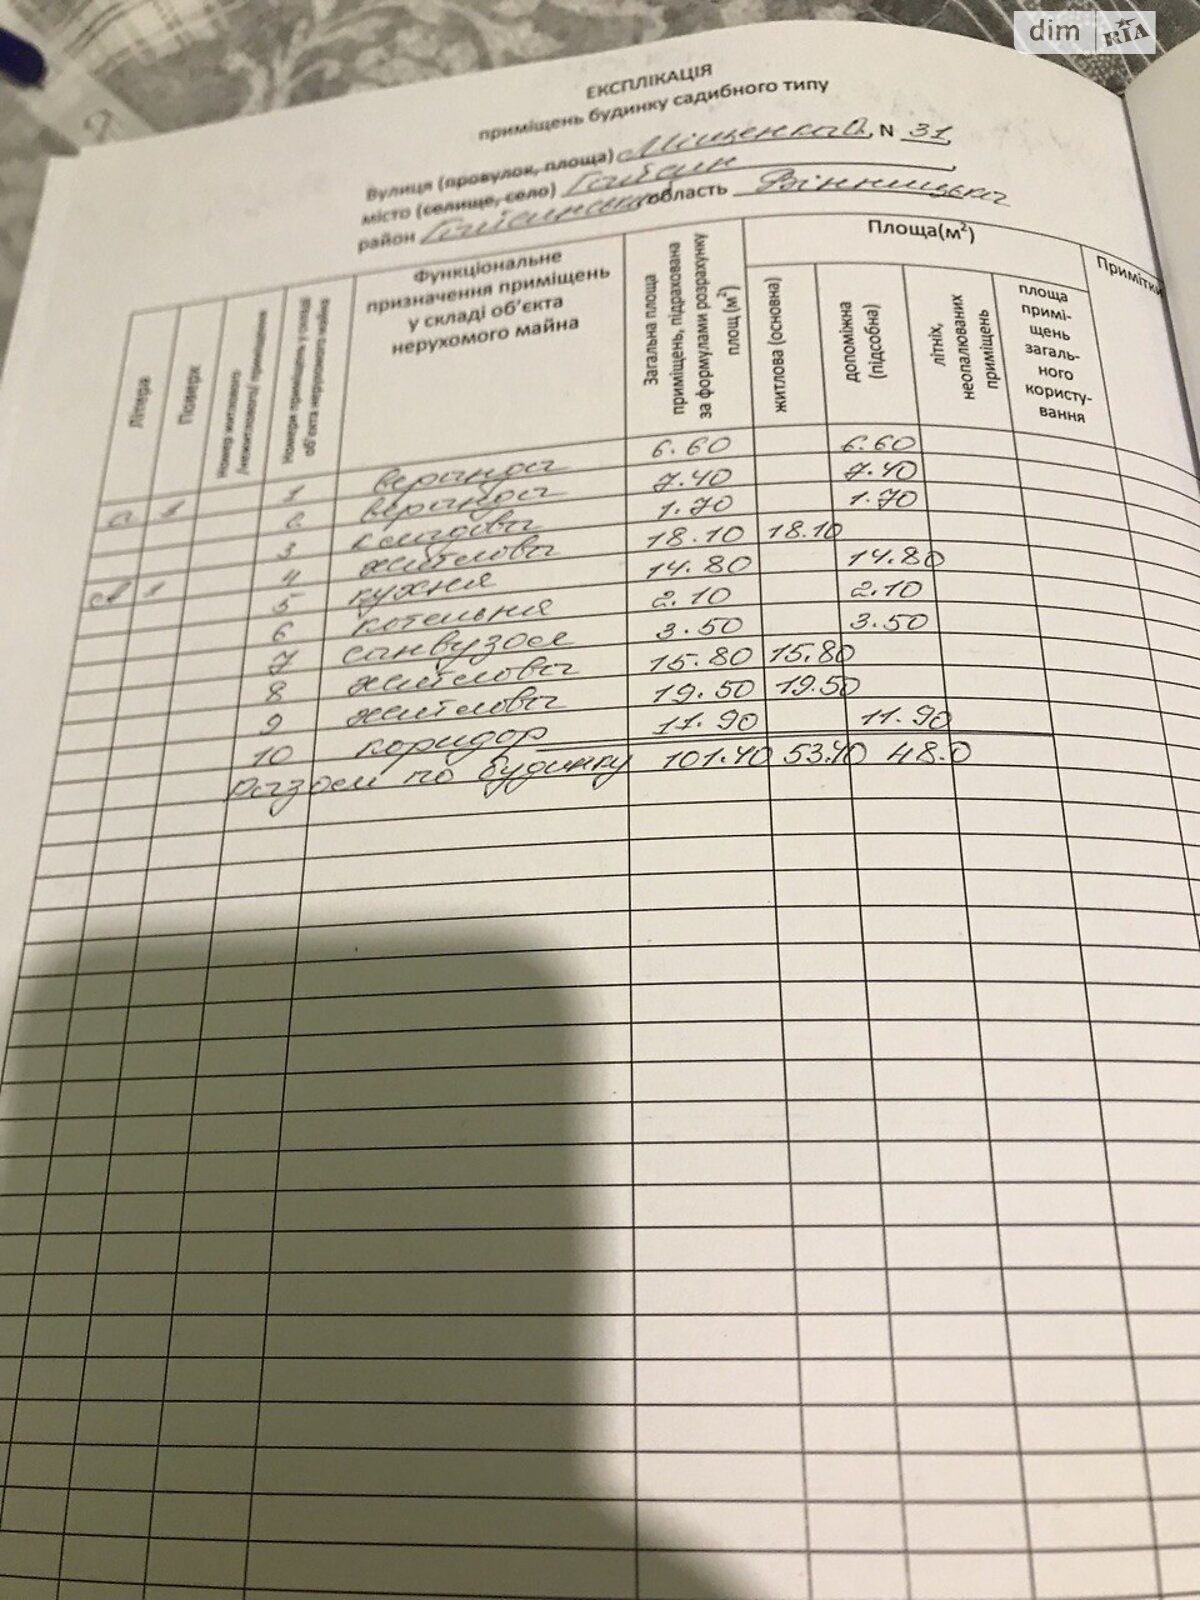 dim RIA
ЕКСПЛІКАЦІЯ
приміщень будинку садибного типу
Вулиця (провулок, площа) Міщенка О. , N 31,
місто (селище, село) Гайсин ,
район Гайсинський область Вінницька
Літера
Поверх
Номер житлового /нежитлового/ приміщення
Номери приміщень у складі об'єкта нерухомого майна
Функціональне
призначення приміщень
у складі об'єкта
нерухомого майна
Загальна площа
приміщень, підрахована
за формулами розрахунку
площ (м²)
Площа(м²)
житлова (основна)
допоміжна
(підсобна)
літніх,
неопалюваних
приміщень
площа
примі-
щень
загаль-
ного
користу-
вання
Примітки
а 1 1 веранда 6.60 6.60
2 веранда 7.40 7.40
3 кладова 1.70 1.70
А 1 4 житлова 18.10 18.10
5 кухня 14.80 14.80
6 котельня 2.10 2.10
7 санвузол 3.50 3.50
8 житлова 15.80 15.80
9 житлова 19.50 19.50
10 коридор 11.90 11.90
Разом по будинку 101.40 53.40 48.0